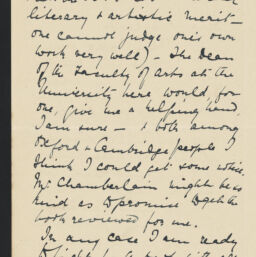 literary & artistic merit —
one cannot judge one's own
work very well) — The Dean
of the Faculty of Arts at the
University here would, for
one, give me a helping hand
I am sure — & both among
Oxford & Cambridge people I
think I could get some notice.
Mr Chamberlain might be so
kind as to promise to get the
book reviewed for me.
In any case I am ready